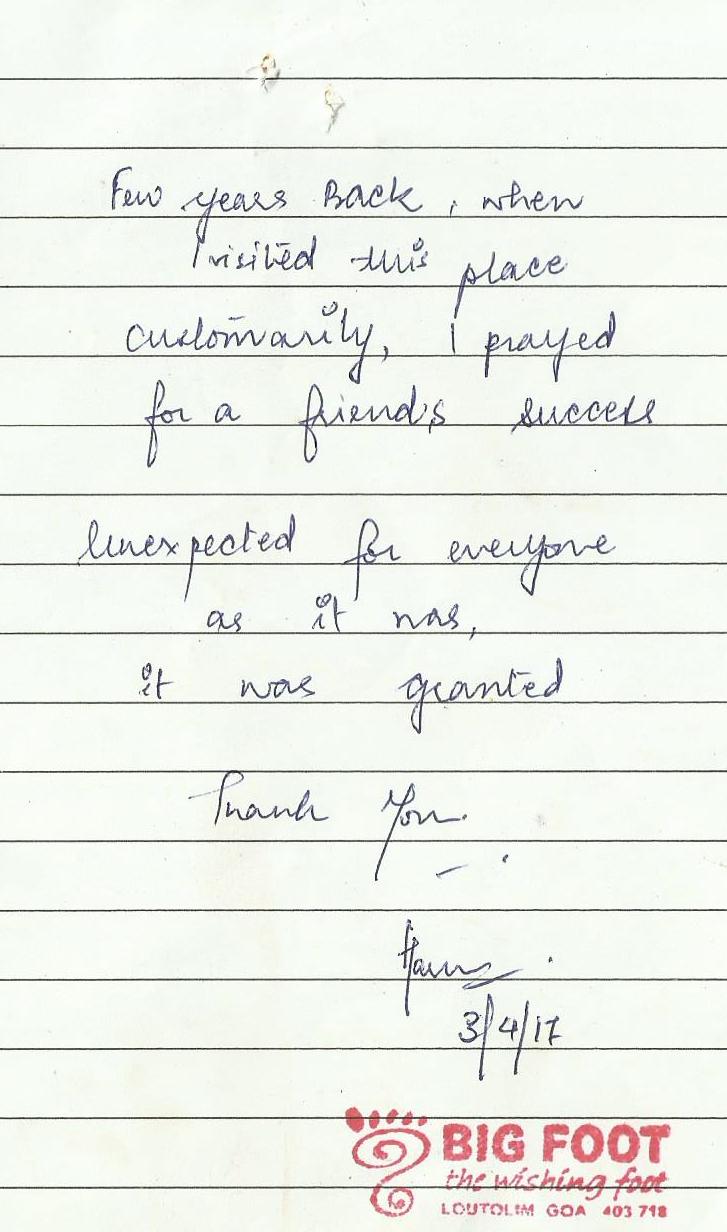 Few years Back, when
I visited this place
customarily, I prayed
for a friend's success
Unexpected for everyone
as it was,
it was granted
Thank You.
3/4/17
BIG FOOT
the wishing foot
LOUTOLIM GOA 403 718